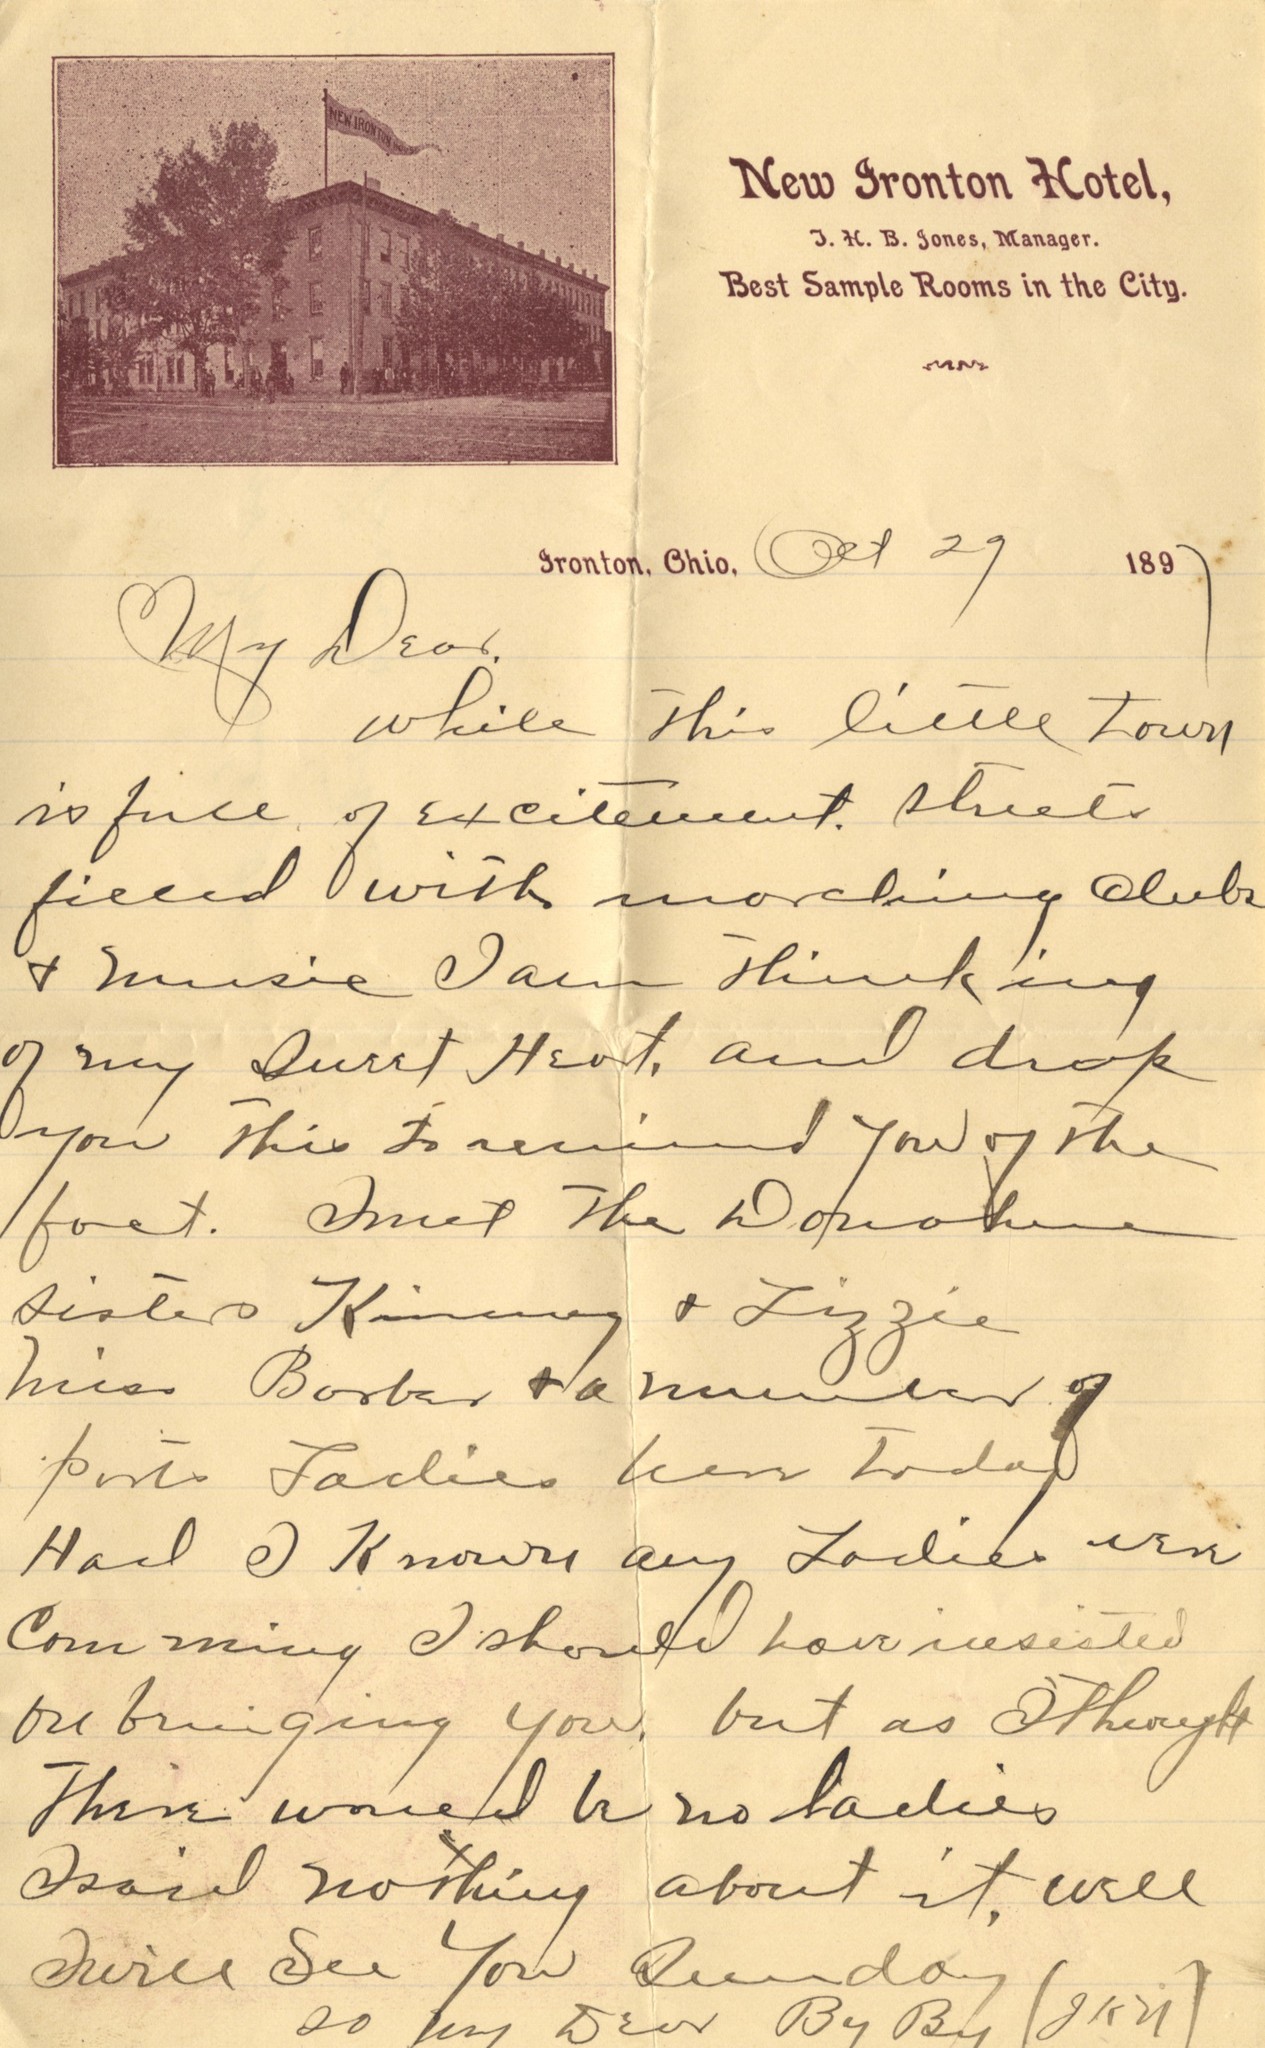 NEW IRONTON
New Ironton Hotel,
J. H. B. Jones, Manager.
Best Sample Rooms in the City.
Ironton, Ohio, Oct 29 1897
My Dear.
while this little town
is full of excitement. streets
filled with marching Clubs
& music I am thinking
of my Sweet Heart, and drop
you this to remind you of the
fact. I met the Donohue
sisters Kinney & Lizzie
Miss Barber & a number of
Ports Ladies here today
Had I Known any Ladies were
Comming I should have insisted
on bringing you, but as I thought
There would be no ladies
I said nothing about it, well
I will See You Sunday
so my Dear By By (JKN)